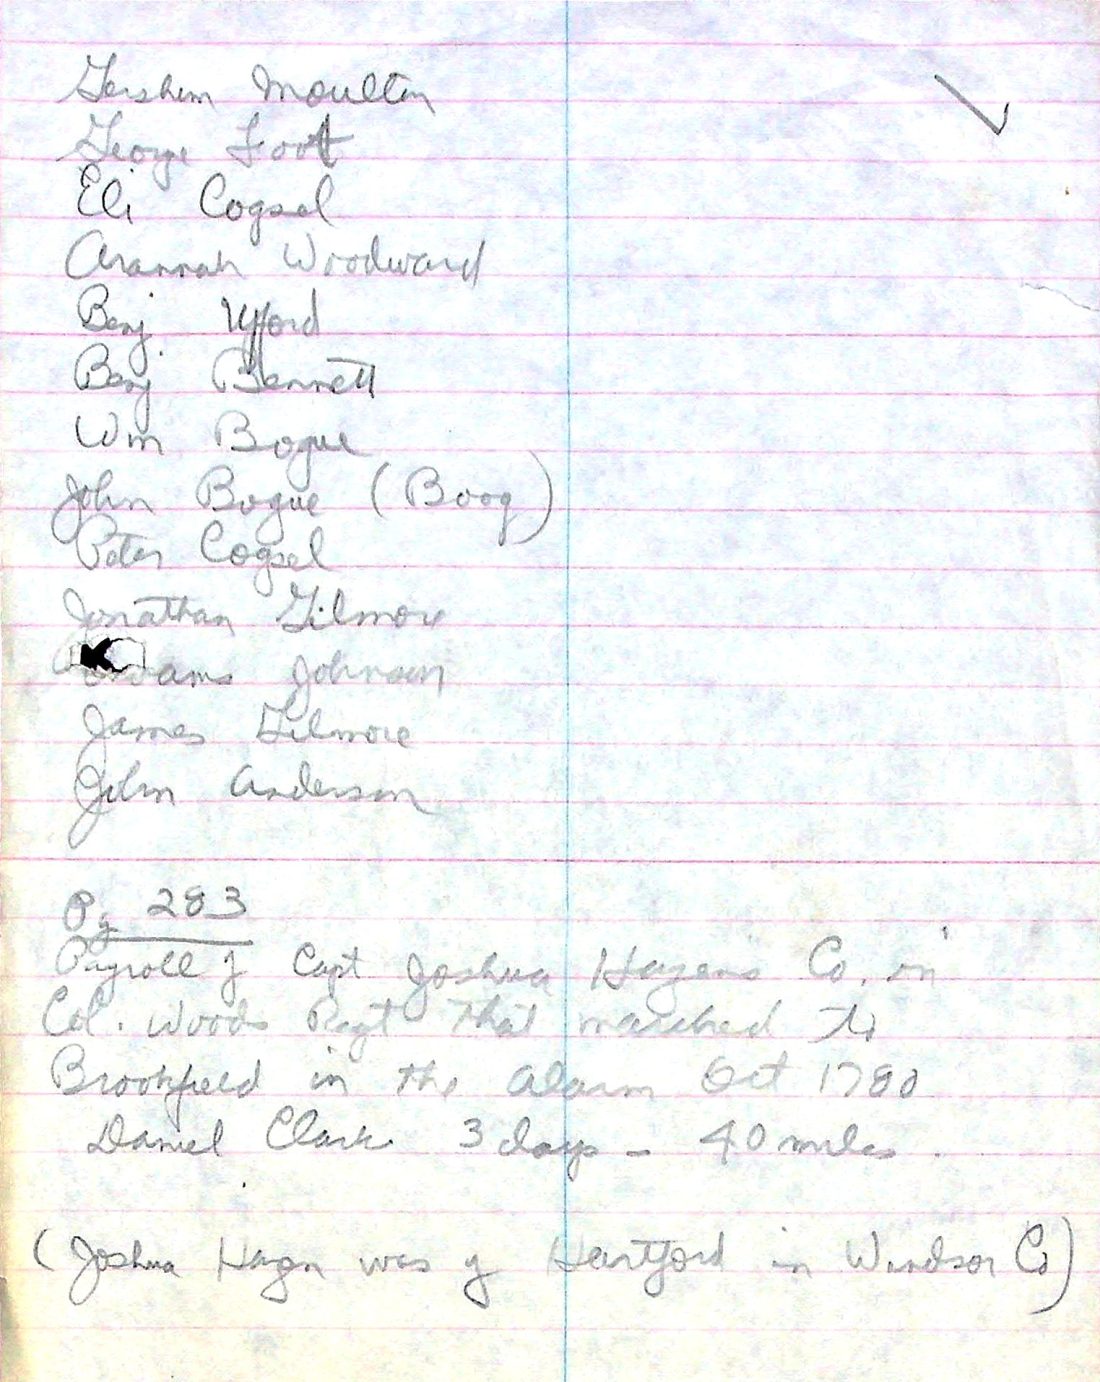 Gershem Moulton
George Foot
Eli Cogsel
Arannah Woodward
Benj. Ufford
Benj Bennett
Wm Bogue
John Bogue (Boog)
Peter Cogsel
Jonathan Gilmore
Johnson
James Gilmore
John Anderson
Pg 283
Payroll of Capt Joshua Hazens Co. in
Col. Woods Regt that marched to
Brookfield in the alarm Oct 1780
Daniel Clark 3 days - 40 miles.
(Joshua Hazen was of Hartford in Windsor Co)